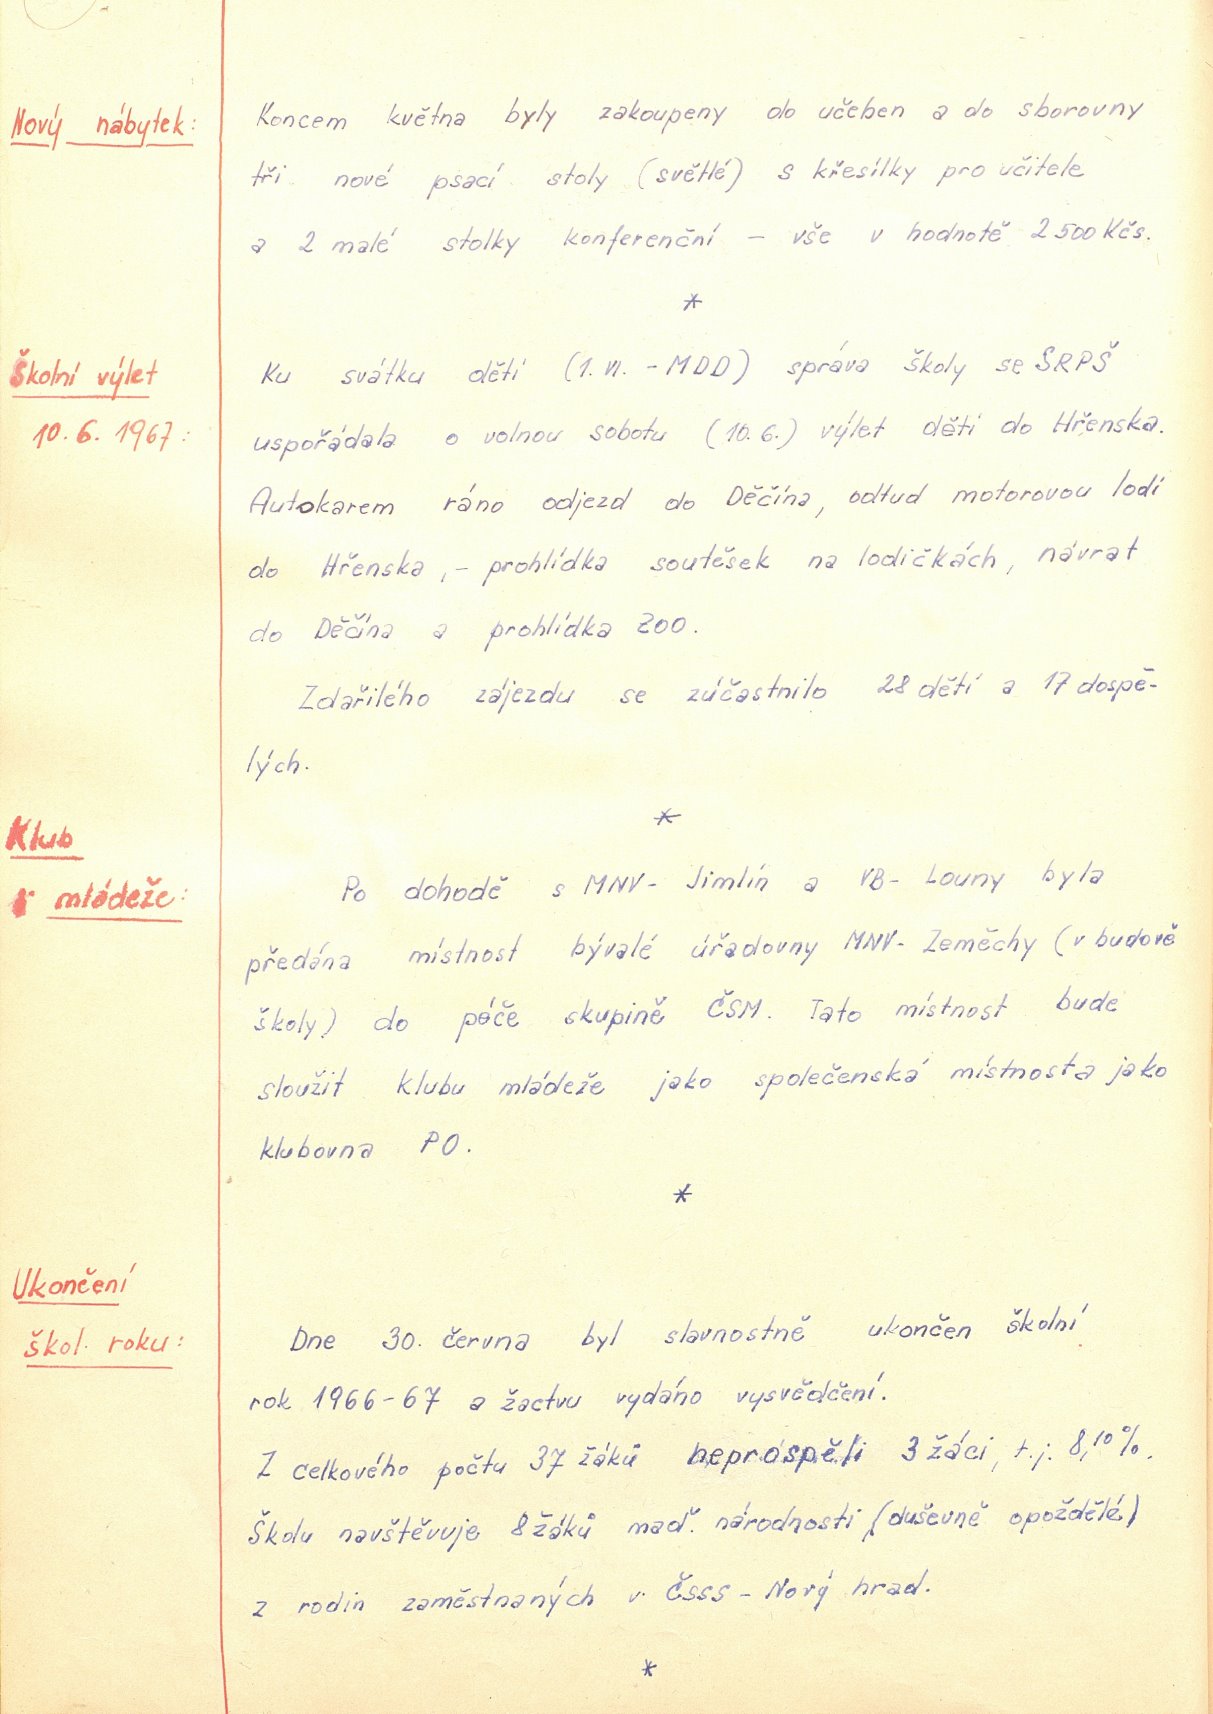 Nový nábytek:
Koncem května byly zakoupeny do učeben a do sborovny
tři nové psací stoly (světlé) s křesílky pro učitele
a 2 malé stolky konferenční – vše v hodnotě 2 500 Kčs.
*
Školní výlet
10. 6. 1967:
Ku svátku dětí (1. VI. - MDD) správa školy se SRPŠ
uspořádala o volnou sobotu (10. 6.) výlet dětí do Hřenska.
Autokarem ráno odjezd do Děčína, odtud motorovou lodí
do Hřenska, – prohlídka soutěsek na lodičkách, návrat
do Děčína a prohlídka ZOO.
Zdařilého zájezdu se zúčastnilo 28 dětí a 17 dospě-
lých.
*
Klub
mládeže:
Po dohodě s MNV - Jimlín a VB - Louny byla
předána místnost bývalé úřadovny MNV - Zeměchy (v budově
školy) do péče skupině ČSM. Tato místnost bude
sloužit klubu mládeže jako společenská místnost a jako
klubovna PO.
*
Ukončení
škol. roku:
Dne 30. června byl slavnostně ukončen školní
rok 1966 - 67 a žactvu vydáno vysvědčení.
Z celkového počtu 37 žáků neprospěli 3 žáci, t. j. 8,10 %.
Školu navštěvuje 8 žáků maď. národnosti (duševně opoždělé)
z rodin zaměstnaných v ČSSS - Nový hrad.
*